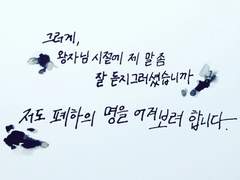 그러게,
왕자님 시절에 제 말 좀
잘 듣지그러셨습니까
저도 폐하의 명을 어겨보려 합니다.